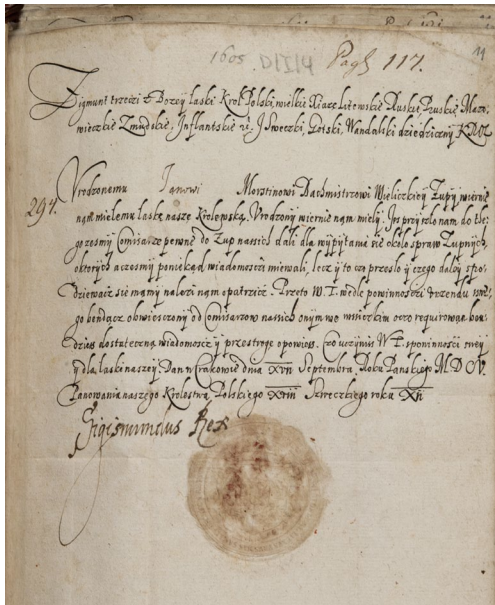 1605 D/I/4 Pag. 117.
Zigmunt trzeczi z Bozey łaski Krol Polski, wielkie Xiąze Litewskie, Ruskie, Pruskie, Mazo-
wieckie, Zmudskie, Inflantskie, J Szwecki, Gotski, Wandalski dziedziczny Krol
294.
Vrodzonemu Janowi Morstinowi Bachmistrzowi Wieliczkiey Zupy, wiernie
nam miełemu łaskę nasze Krolewską. Vrodzony wiernie nam miely. Jsz przyszlo nam do te-
go zesmy Comisarze pewne do Zup naszich dali dla wypytania się około spraw Zupnych,
o ktorych aczesmy poniekąd wiadomosczi miewali, lecz y to czo przeslo y czego daliby spo-
dziewacz się mamy nalezi nam opatrzicz. Przeto W.T. wedle powinnosczi vrzendu
go bendącz obwiesczony od Comisarzow naszich onym we wsitkim oczo requirowan bon-
dziesz dostateczną wiadomoscz y przestrogę opowies. Czo uczynis W.T. s powinnosczi swey
y dla łaski naszey. Dan w Crakowie dnia XVII Septembra Roku Panskiego MDCV.
Panowania naszego Krolestwa Polskiego XVIII Szweczkiego roku XII
Sigismundus Rex